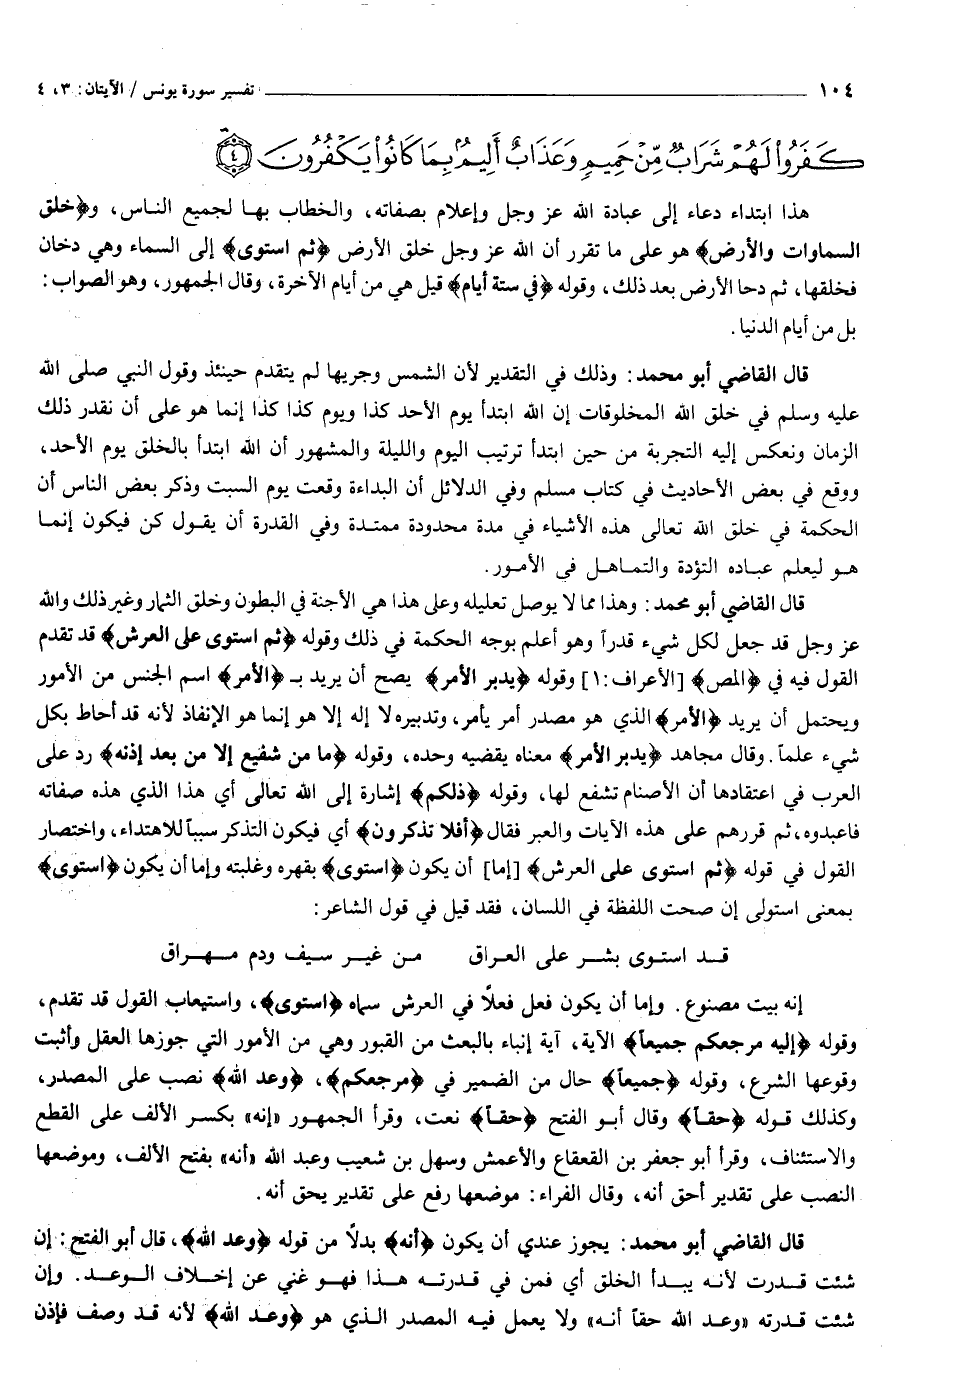 ١٠٤ ــــــــــ تفسير سورة يونس / الآيتان: ٣، ٤
كَفَرُواْ لَهُمْ شَرَابٌ مِّنْ حَمِيمٍ وَعَذَابٌ أَلِيمٌ بِمَا كَانُواْ يَكْفُرُونَ ﴿٤﴾
هذا ابتداء دعاء إلى عبادة الله عز وجل وإعلام بصفاته، والخطاب بها لجميع الناس، و﴿خلق
السماوات والأرض﴾ هو على ما تقرر أن الله عز وجل خلق الأرض ﴿ثم استوى﴾ إلى السماء وهي دخان
فخلقها، ثم دحا الأرض بعد ذلك، وقوله ﴿في ستة أيام﴾ قيل هي من أيام الآخرة، وقال الجمهور، وهو الصواب:
بل من أيام الدنيا.
قال القاضي أبو محمد: وذلك في التقدير لأن الشمس وجريها لم يتقدم حينئذ وقول النبي صلى الله
عليه وسلم في خلق الله المخلوقات إن الله ابتدأ يوم الأحد كذا ويوم كذا كذا إنما هو على أن نقدر ذلك
الزمان ونعكس إليه التجربة من حين ابتدأ ترتيب اليوم والليلة والمشهور أن الله ابتدأ بالخلق يوم الأحد،
ووقع في بعض الأحاديث في كتاب مسلم وفي الدلائل أن البداءة وقعت يوم السبت وذكر بعض الناس أن
الحكمة في خلق الله تعالى هذه الأشياء في مدة محدودة ممتدة وفي القدرة أن يقول كن فيكون إنما
هو ليعلم عباده التؤدة والتماهل في الأمور.
قال القاضي أبو محمد: وهذا مما لا يوصل تعليله وعلى هذا هي الأجنة في البطون وخلق الثمار وغير ذلك والله
عز وجل قد جعل لكل شيء قدراً وهو أعلم بوجه الحكمة في ذلك وقوله ﴿ثم استوى على العرش﴾ قد تقدم
القول فيه في ﴿المص﴾ [الأعراف:١] وقوله ﴿يدبر الأمر﴾ يصح أن يريد بـ ﴿الأمر﴾ اسم الجنس من الأمور
ويحتمل أن يريد ﴿الأمر﴾ الذي هو مصدر أمر يأمر، وتدبيره لا إله إلا هو إنما هو الإنفاذ لأنه قد أحاط بكل
شيء علماً. وقال مجاهد ﴿يدبر الأمر﴾ معناه يقضيه وحده، وقوله ﴿ما من شفيع إلا من بعد إذنه﴾ رد على
العرب في اعتقادها أن الأصنام تشفع لها، وقوله ﴿ذلكم﴾ إشارة إلى الله تعالى أي هذا الذي هذه صفاته
فاعبدوه، ثم قررهم على هذه الآيات والعبر فقال ﴿أفلا تذكرون﴾ أي فيكون التذكر سبباً للاهتداء، واختصار
القول في قوله ﴿ثم استوى على العرش﴾ [إما] أن يكون ﴿استوى﴾ بقهره وغلبته وإما أن يكون ﴿استوى﴾
بمعنى استولى إن صحت اللفظة في اللسان، فقد قيل في قول الشاعر:
قد استوى بشر على العراق من غير سيف ودم مهراق
إنه بيت مصنوع. وإما أن يكون فعل فعلاً في العرش سماه ﴿استوى﴾، واستيعاب القول قد تقدم،
وقوله ﴿إليه مرجعكم جميعاً﴾ الآية، آية إنباء بالبعث من القبور وهي من الأمور التي جوزها العقل وأثبت
وقوعها الشرع، وقوله ﴿جميعاً﴾ حال من الضمير في ﴿مرجعكم﴾، ﴿وعد الله﴾ نصب على المصدر،
وكذلك قوله ﴿حقاً﴾ وقال أبو الفتح ﴿حقاً﴾ نعت، وقرأ الجمهور «إنه» بكسر الألف على القطع
والاستئناف، وقرأ أبو جعفر بن القعقاع والأعمش وسهل بن شعيب وعبد الله «أنه» بفتح الألف، وموضعها
النصب على تقدير أحق أنه، وقال الفراء: موضعها رفع على تقدير يحق أنه.
قال القاضي أبو محمد: يجوز عندي أن يكون ﴿أنه﴾ بدلاً من قوله ﴿وعد الله﴾، قال أبو الفتح: إن
شئت قدرت لأنه يبدأ الخلق أي فمن في قدرته هذا فهو غني عن إخلاف الوعد. وإن
شئت قدرته «وعد الله حقاً أنه» ولا يعمل فيه المصدر الذي هو ﴿وعد الله﴾ لأنه قد وصف فإذن